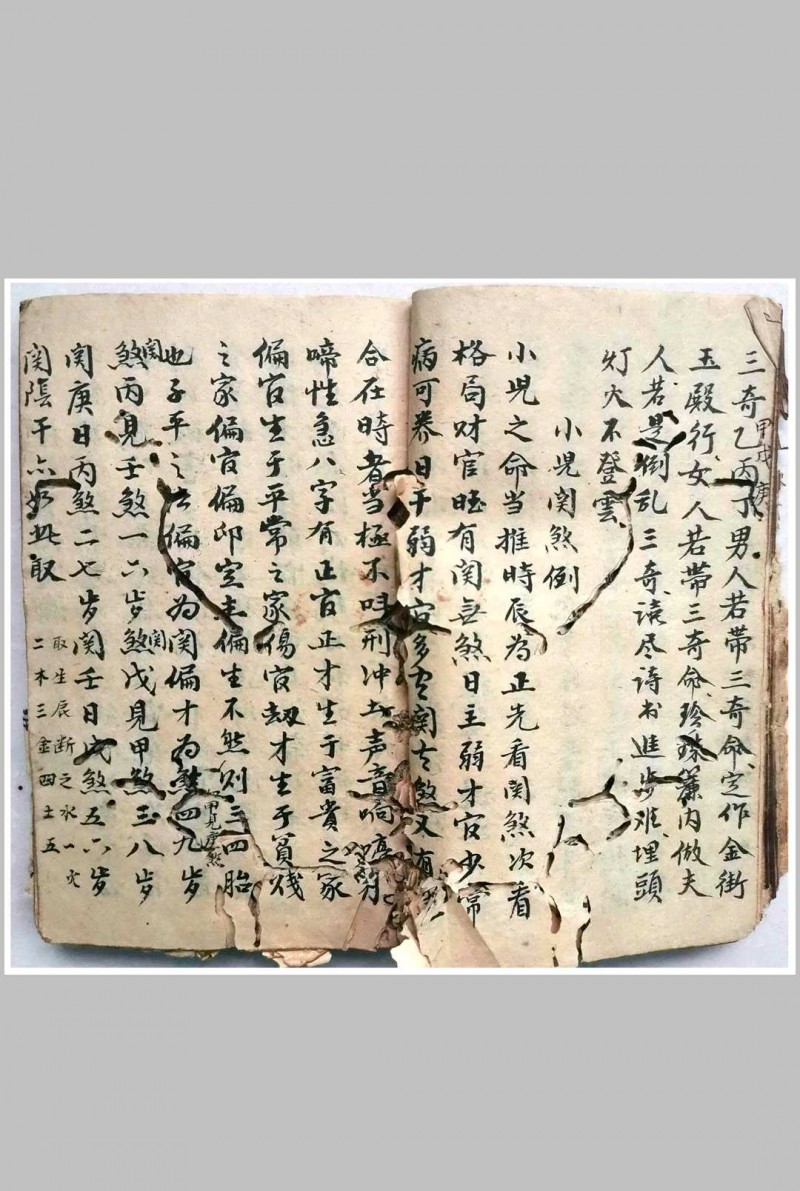 三奇乙丙丁男人若带三奇命定作金街
甲戊庚
玉殿行女人若带三奇命珍珠簾内做夫
人若是倒乱三奇读尽诗书進步难埋頭
灯火不登雲
小児関煞例
小児之命当推時辰為正先看関煞次看
格局财官旺有関無煞日主弱才官少常
病可养日干弱才官多関煞又有
合在時者当極不刑冲土声音响
啼性急八字有正官正才生于富貴之家
偏官生于平常之家傷官劫才生于貧賤
之家偏官偏印定主偏生不然则三四胎
甲見庚煞
也子平之法偏官為関偏才為煞四九岁
関
煞丙見壬煞一六岁煞戊見甲煞三八岁
関
関庚日丙煞二七岁関壬日戊煞五六岁
関陰干亦如此取
取生辰断之水一火
二木三金四土五